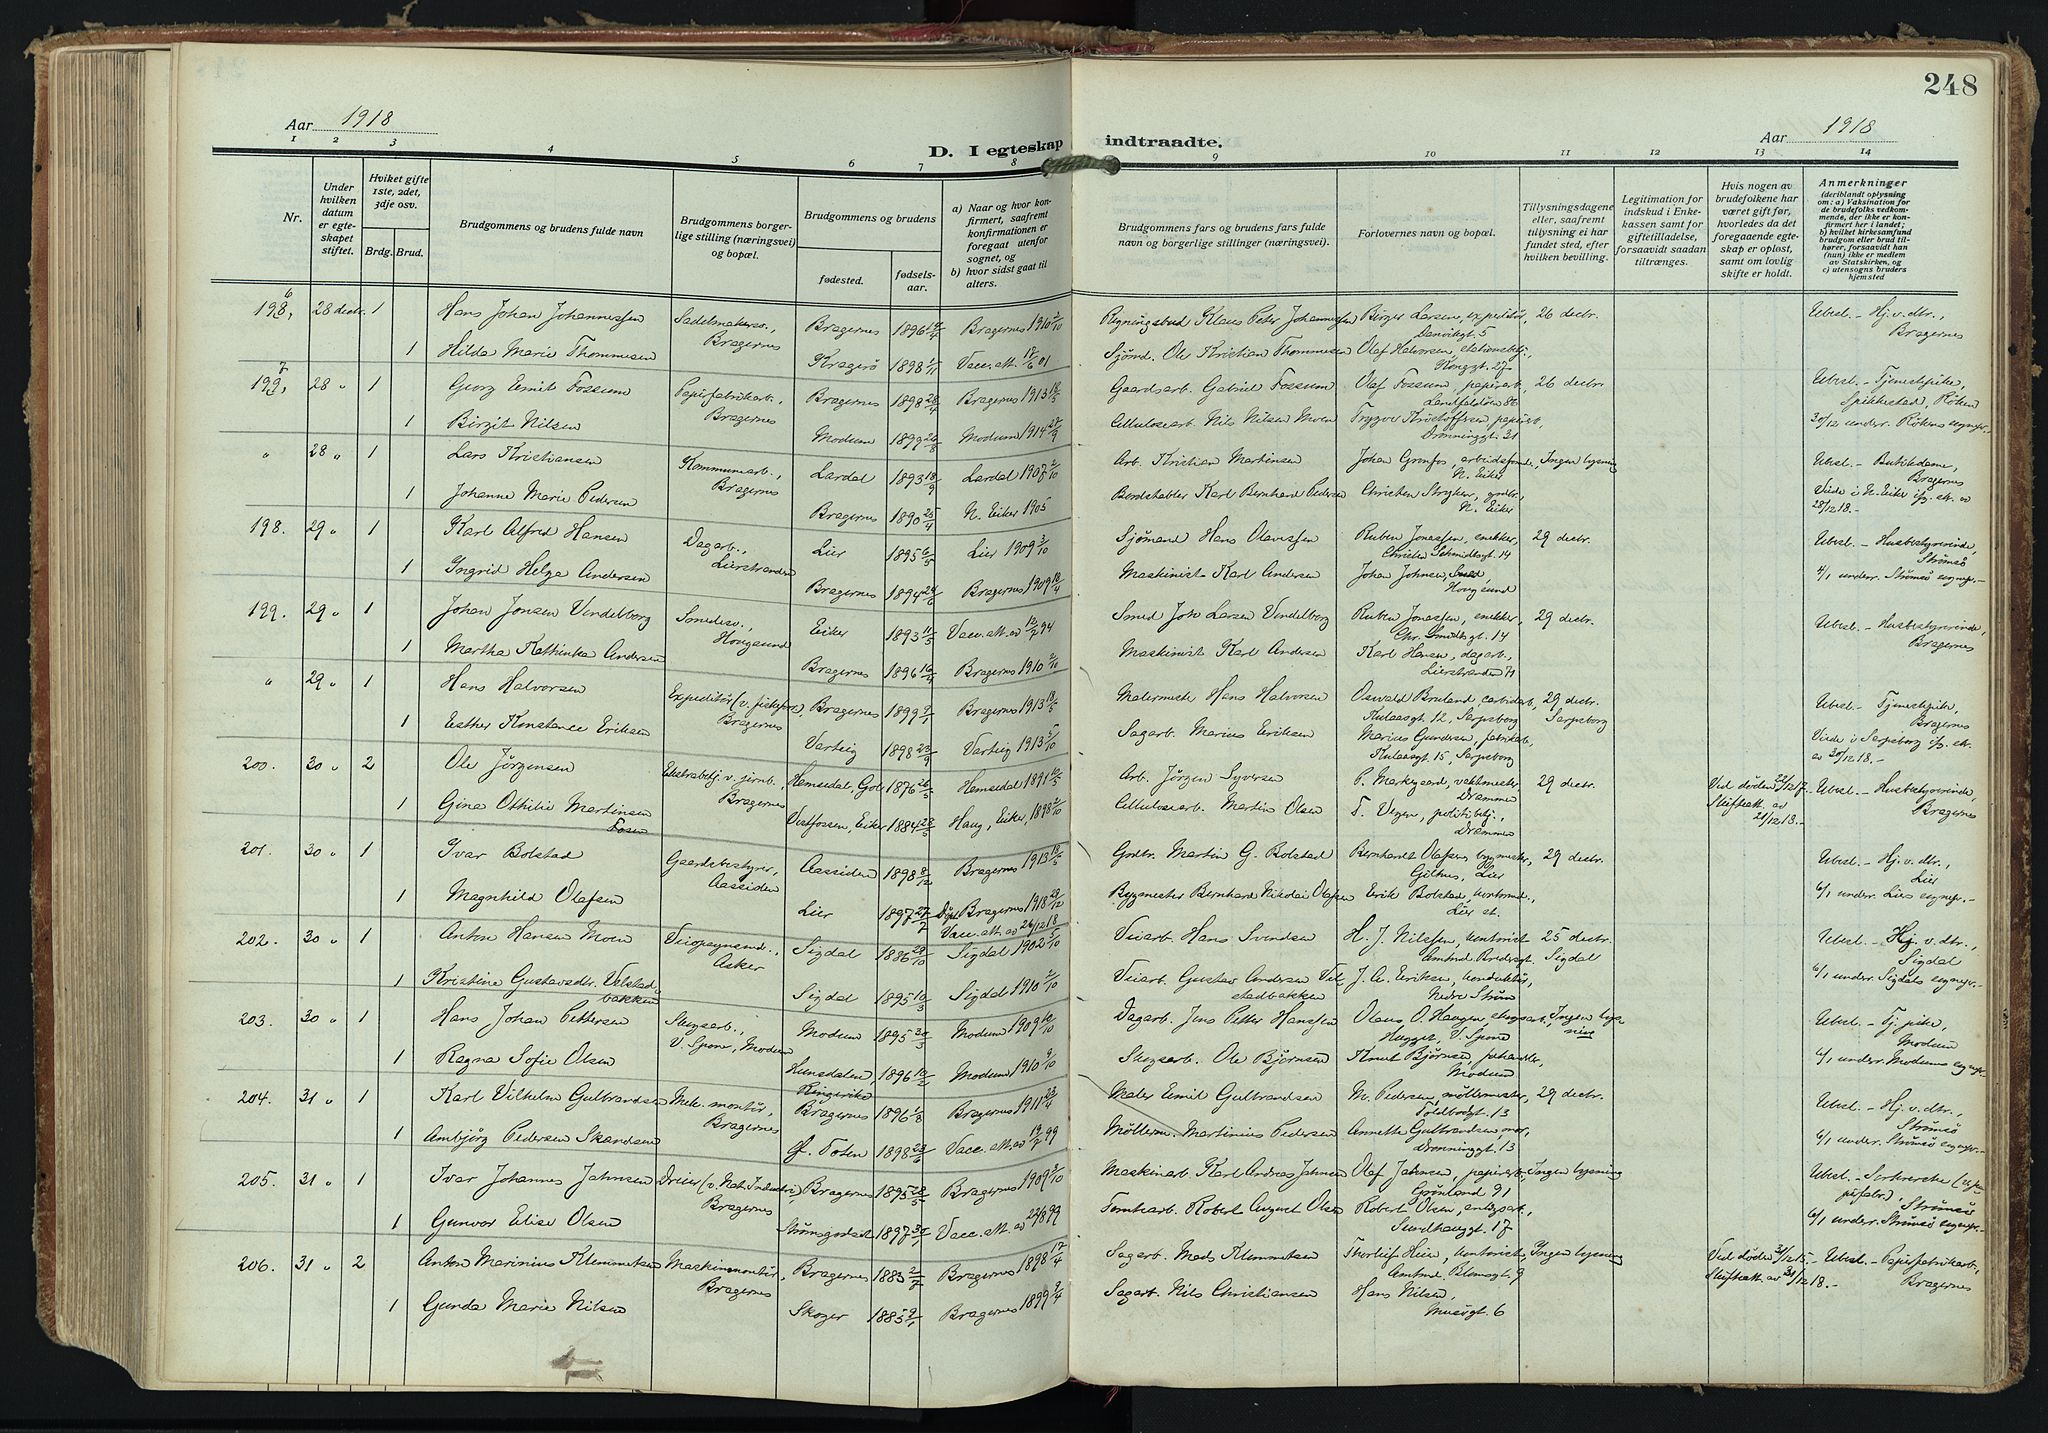 248
Aar 1918
D. I egteskap indtraadte.
Aar 1918
1 2 3 4 5 6 7 8 9 10 11 12 13 14
Nr.
Under hvilken datum er egteskapet stiftet.
Hviket gifte 1ste, 2det, 3dje osv.
Brdg. Brud.
Brudgommens og brudens fulde navn
Brudgommens borgerlige stilling (næringsvei) og bopæl.
Brudgommens og brudens
fødested.
fødselsaar.
a) Naar og hvor konfirmert, saafremt konfirmationen er foregaat utenfor sognet, og
b) hvor sidst gaat til alters.
Brudgommens fars og brudens fars fulde navn og borgerlige stillinger (næringsvei).
Forlovernes navn og bopæl.
Tillysningsdagene eller, saafremt tillysning ei har fundet sted, efter hvilken bevilling.
Legitimation for indskud i Enkekassen samt for giftetilladelse, forsaavidt saadan tiltrænges.
Hvis nogen av brudefolkene har været gift før, hvorledes da det foregaaende egteskap er opløst, samt om lovlig skifte er holdt.
Anmerkninger (deriblandt oplysning om: a) Vaksination for de brudefolks vedkommende, der ikke er konfirmert her i landet; b) hvilket kirkesamfund brudgom eller brud tilhører, forsaavidt han (hun) ikke er medlem av Statskirken, og c) utensogns bruders hjemsted
196. 28 decbr. 1 Hans Johan Johannessen Sadelmakersv., Bragernes Bragernes 1896 Bragernes 1910 2/10 Regningsbud Klaus Peter Johannessen Birger Larsen, expeditør, Danvikgt. 5 26 decbr. Ubesl. - Hj. v. dtr., Bragernes
1 Hilda Marie Thommesen Kragerø 1898 1/11 Vacc. att. 18/6 01 Sjømd. Ole Kristian Thommesen Olaf Halvorsen, stationsbtj., Konggt. 27
197. 28 " 1 Georg Emil Fossum Papirfabrikarb., Bragernes Bragernes 1898 28/4 Bragernes 1913 18/5 Gaardsarb. Gabriel Fossum Olaf Fossum, papirarb., Landfaldøen 82 26 decbr. Ubesl. - Tjenestepike, Spikkestad, Røken
1 Birgit Nilsen Modum 1899 26/8 Modum 1914 27/9 Cellulosearb. Nils Nilsen Moen Trygve Kristoffersen, papirarb., Dronninggt. 21 30/12 underr. Røkens sognepr. -
" 28 " 1 Lars Kristiansen Kommunearb., Bragernes Lardal 1893 18/9 Lardal 1907 2/10 Arb. Kristian Martinsen Johan Grenfos, arbeidsform., N. Eiker Ingen lysning Ubesl. - Butikdame, Bragernes
1 Johanne Marie Pedersen Bragernes 1890 25/4 N. Eiker 1905 Bordstabler Karl Bernhard Pedersen Christen Stryker, grdbr., N. Eiker Viede i N. Eiker ifg. att. av 28/12 18. -
198. 29 " 1 Karl Alfred Hansen Dagarb., Lierstranden Lier 1895 6/5 Lier 1909 3/10 Sjømand Hans Olavessen Ruben Jonassen, snekker, Christen Schmidtsgt. 14 29 decbr. Ubesl. - Husbestyrerinde, Strømsø
1 Ingrid Helga Andersen Bragernes 1894 24/6 Bragernes 1909 18/4 Maskinist Karl Andersen Johan Johnsen, Smed, Hougsund 4/1 underr. Strømsø sognepr. -
199. 29 " 1 Johan Jonsen Vendelborg Smedesv., Hougsund Eiker 1893 11/5 Vacc. att. av 12/7 94 Smed Joh. Larsen Vendelborg Ruben Jonassen, snekker, Chr. Smidtsgt. 14 29 decbr. Ubesl. - Husbestyrerinde, Bragernes
1 Martha Kathinka Andersen Bragernes 1896 16/4 Bragernes 1910 2/10 Maskinist Karl Andersen Karl Hansen, dagarb., Lierstranden 71
" 29 " 1 Hans Halvorsen Expeditør (v. fiskeforr.), Bragernes Bragernes 1899 9/1 Bragernes 1913 18/5 Malermester Hans Halvorsen Oswald Bruland, carbidarb., Kulaasgt. 12, Sarpsborg 29 decbr. Sarpsborg Ubesl. - Tjenestepike, Bragernes
1 Esther Konstance Eriksen Varteig 1898 23/9 Varteig 1913 5/10 Sagarb. Marius Eriksen Marius Gundersen, fabrikarb., Kulaasgt. 15, Sarpsborg Viede i Sarpsborg ifg. att. av 30/12 18. -
200. 30 " 2 Ole Jørgensen Ekstrabetj. v. jernb., Bragernes Hemsedal, Gol 1876 26/5 Hemsedal 1891 Arb. Jørgen Syversen P. Markegaard, vaktmester, Drammen 29 decbr. Ved døden 22/12 17. Skifteatt. av 21/12 18. - Ubesl. - Husbestyrerinde, Bragernes
1 Gina Othilie Martinsen Fosen Vestfossen, Eiker 1884 23/5 Haug, Eiker, 1898 2/10 Cellulosearb. Martin Olsen T. Vegen, politibetj., Drammen
201. 30 " 1 Ivar Bolstad Gaardsbestyrer, Aassiden Aassiden 1898 8/12 Bragernes 1913 18/5 Grdbr. Martin G. Bolstad Bernhardt Olafsen, bygmester, Gilhus, Lier 29 decbr. Ubesl. - Hj. v. dtr., Lier
1 Magnhild Olafsen Lier 1897 27/7 Døpt Bragernes 1918 28/12 Vacc. att. av 26/12 18 Bygmester Bernhard Nikolai Olafsen Erik Bolstad, kontormd., Lier st. 6/1 underr. Lies sognepr. -
202. 30 " 1 Anton Hansen Moen Veiopsynsmd., Asker Sigdal 1886 29/10 Sigdal 1902 5/10 Veiarb. Hans Svendsen H. J. Nilsen, kontorist, Amtmd. Bredesgt. 25 decbr. Sigdal Ubesl. - Hj. v. dtr., Sigdal
1 Kristine Gustavsdtr. Velstadbakken Sigdal 1895 10/3 Sigdal 1910 2/10 Veiarb. Gustav Andersen Velstadbakken J. A. Eriksen, konduktør, Nedre Strøm 6/1 underr. Sigdals sognepr. -
203. 30 " 1 Hans Johan Pettersen Skogsarb., V. Spone, Modum Modum 1895 30/3 Modum 1909 10/10 Dagarb. Jens Petter Hanssen Olaus O. Haugen, skogsarb., Hugget, V. Spone Ingen lysning Ubesl. - Tj. pike, Modum
1 Ragna Sofie Olsen Lunsdalen, Ringerike 1896 10/2 Modum 1910 9/10 Skogsarb. Ole Bjørnsen Knut Bjørnsen, Modum 6/1 underr. Modums sognepr. -
204. 31 " 1 Karl Vilhelm Gulbrandsen Mek. montør, Bragernes Bragernes 1896 1/8 Bragernes 1911 23/4 Maler Emil Gulbrandsen M. Pedersen, møllermester, Toldbodgt. 13 29 decbr. Ubesl. - Hj. v. dtr., Strømsø
1 Ambjørg Pedersen Skandsen Ø. Toten 1898 23/6 Vacc. att. av 19/7 99 Møllerm. Martinius Pedersen Annette Gulbrandsen, mor, Dronninggt. 13 6/1 underr. Strømsø sognepr. -
205. 31 " 1 Ivar Johannes Jahnsen Dreier (v. Nat. Industri), Bragernes Bragernes 1895 28/5 Bragernes 1909 3/10 Maskinarb. Karl Andreas Jahnsen Olaf Jahnsen, papirarb., Grønland 91 Ingen lysning Ubesl. - Sortererske (v. papirfabr.), Strømsø
1 Gunvor Elise Olsen Strømsgodset 1897 30/1 Vacc. att. av 23/8 99 Tomtearb. Robert August Olsen Robert Olsen, anlegsarb., Sundhauggt. 17 6/1 underr. Strømsø sognepr. -
206. 31 " 2 Anton Marinius Klemmetsen Maskinmontør, Bragernes Bragernes 1883 2/7 Bragernes 1898 17/4 Sagarb. Mads Klemmetsen Thorleif Heien, kontorist, Amtmd. Blomsgt. 9 Ingen lysning Ved døden 31/12 15. - Skifteatt. av 31/12 18. - Ubesl. - Papirfabrikarb., Bragernes
1 Gunda Marie Nilsen Skoger 1885 9/1 Bragernes 1899 9/4 Sagarb. Nils Christiansen Hans Nilsen, Musøgt. 6